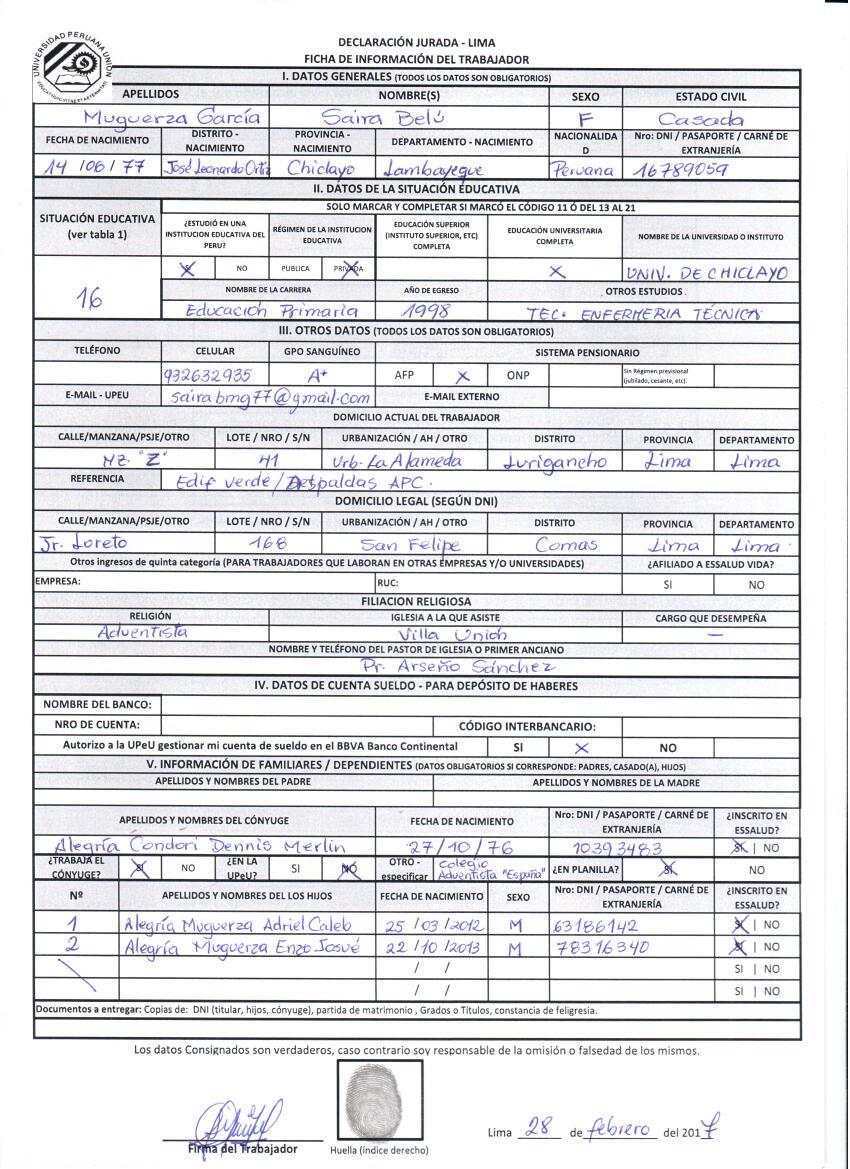 UNIVERSIDAD PERUANA UNION
DECLARACIÓN JURADA - LIMA
FICHA DE INFORMACIÓN DEL TRABAJADOR
I. DATOS GENERALES (TODOS LOS DATOS SON OBLIGATORIOS)
APELLIDOS NOMBRE(S) SEXO ESTADO CIVIL
Muguerza García Saira Belú F Casada
FECHA DE NACIMIENTO DISTRITO - NACIMIENTO PROVINCIA - NACIMIENTO DEPARTAMENTO - NACIMIENTO NACIONALIDAD Nro: DNI / PASAPORTE / CARNÉ DE EXTRANJERÍA
14 /06 / 77 José Leonardo Ortiz Chiclayo Lambayeque Peruana 16789059
II. DATOS DE LA SITUACIÓN EDUCATIVA
SOLO MARCAR Y COMPLETAR SI MARCÓ EL CÓDIGO 11 Ó DEL 13 AL 21
SITUACIÓN EDUCATIVA (ver tabla 1) ¿ESTUDIÓ EN UNA INSTITUCION EDUCATIVA DEL PERU? RÉGIMEN DE LA INSTITUCION EDUCATIVA EDUCACIÓN SUPERIOR (INSTITUTO SUPERIOR, ETC) COMPLETA EDUCACIÓN UNIVERSITARIA COMPLETA NOMBRE DE LA UNIVERSIDAD O INSTITUTO
SI NO PUBLICA PRIVADA X UNIV. DE CHICLAYO
16 NOMBRE DE LA CARRERA AÑO DE EGRESO OTROS ESTUDIOS
Educación Primaria 1998 TEC. ENFERMERIA TÉCNICA
III. OTROS DATOS (TODOS LOS DATOS SON OBLIGATORIOS)
TELÉFONO CELULAR GPO SANGUÍNEO SISTEMA PENSIONARIO
932632935 A+ AFP X ONP Sin Régimen previsional (jubilado, cesante, etc).
E-MAIL - UPEU sairabmg77@gmail.com E-MAIL EXTERNO
DOMICILIO ACTUAL DEL TRABAJADOR
CALLE/MANZANA/PSJE/OTRO LOTE / NRO / S/N URBANIZACIÓN / AH / OTRO DISTRITO PROVINCIA DEPARTAMENTO
MZ. "Z" 41 Urb. La Alameda Lurigancho Lima Lima
REFERENCIA Edif verde / Despaldas APC.
DOMICILIO LEGAL (SEGÚN DNI)
CALLE/MANZANA/PSJE/OTRO LOTE / NRO / S/N URBANIZACIÓN / AH / OTRO DISTRITO PROVINCIA DEPARTAMENTO
Jr. Loreto 168 San Felipe Comas Lima Lima
Otros ingresos de quinta categoría (PARA TRABAJADORES QUE LABORAN EN OTRAS EMPRESAS Y/O UNIVERSIDADES) ¿AFILIADO A ESSALUD VIDA?
EMPRESA: RUC: SI NO
FILIACION RELIGIOSA
RELIGIÓN IGLESIA A LA QUE ASISTE CARGO QUE DESEMPEÑA
Adventista Villa Unión —
NOMBRE Y TELÉFONO DEL PASTOR DE IGLESIA O PRIMER ANCIANO
Pr. Arseño Sánchez
IV. DATOS DE CUENTA SUELDO - PARA DEPÓSITO DE HABERES
NOMBRE DEL BANCO:
NRO DE CUENTA: CÓDIGO INTERBANCARIO:
Autorizo a la UPeU gestionar mi cuenta de sueldo en el BBVA Banco Continental SI X NO
V. INFORMACIÓN DE FAMILIARES / DEPENDIENTES (DATOS OBLIGATORIOS SI CORRESPONDE: PADRES, CASADO(A), HIJOS)
APELLIDOS Y NOMBRES DEL PADRE APELLIDOS Y NOMBRES DE LA MADRE
APELLIDOS Y NOMBRES DEL CÓNYUGE FECHA DE NACIMIENTO Nro: DNI / PASAPORTE / CARNÉ DE EXTRANJERÍA ¿INSCRITO EN ESSALUD?
Alegría Condori Dennis Merlin 27/10/76 10393483 SI | NO
¿TRABAJA EL CÓNYUGE? SI NO ¿EN LA UPeU? SI NO OTRO - especificar Colegio Adventista "España" ¿EN PLANILLA? SI NO
Nº APELLIDOS Y NOMBRES DEL LOS HIJOS FECHA DE NACIMIENTO SEXO Nro: DNI / PASAPORTE / CARNÉ DE EXTRANJERÍA ¿INSCRITO EN ESSALUD?
1 Alegría Muguerza Adriel Caleb 25 /03 /2012 M 63186142 SI | NO
2 Alegría Muguerza Enzo Josué 22 / 10 / 2013 M 78316340 SI | NO
/ / SI | NO
/ / SI | NO
Documentos a entregar: Copias de: DNI (titular, hijos, cónyuge), partida de matrimonio , Grados o Títulos, constancia de feligresia.
Los datos Consignados son verdaderos, caso contrario soy responsable de la omisión o falsedad de los mismos.
Firma del Trabajador Huella (índice derecho) Lima 28 de febrero del 2017